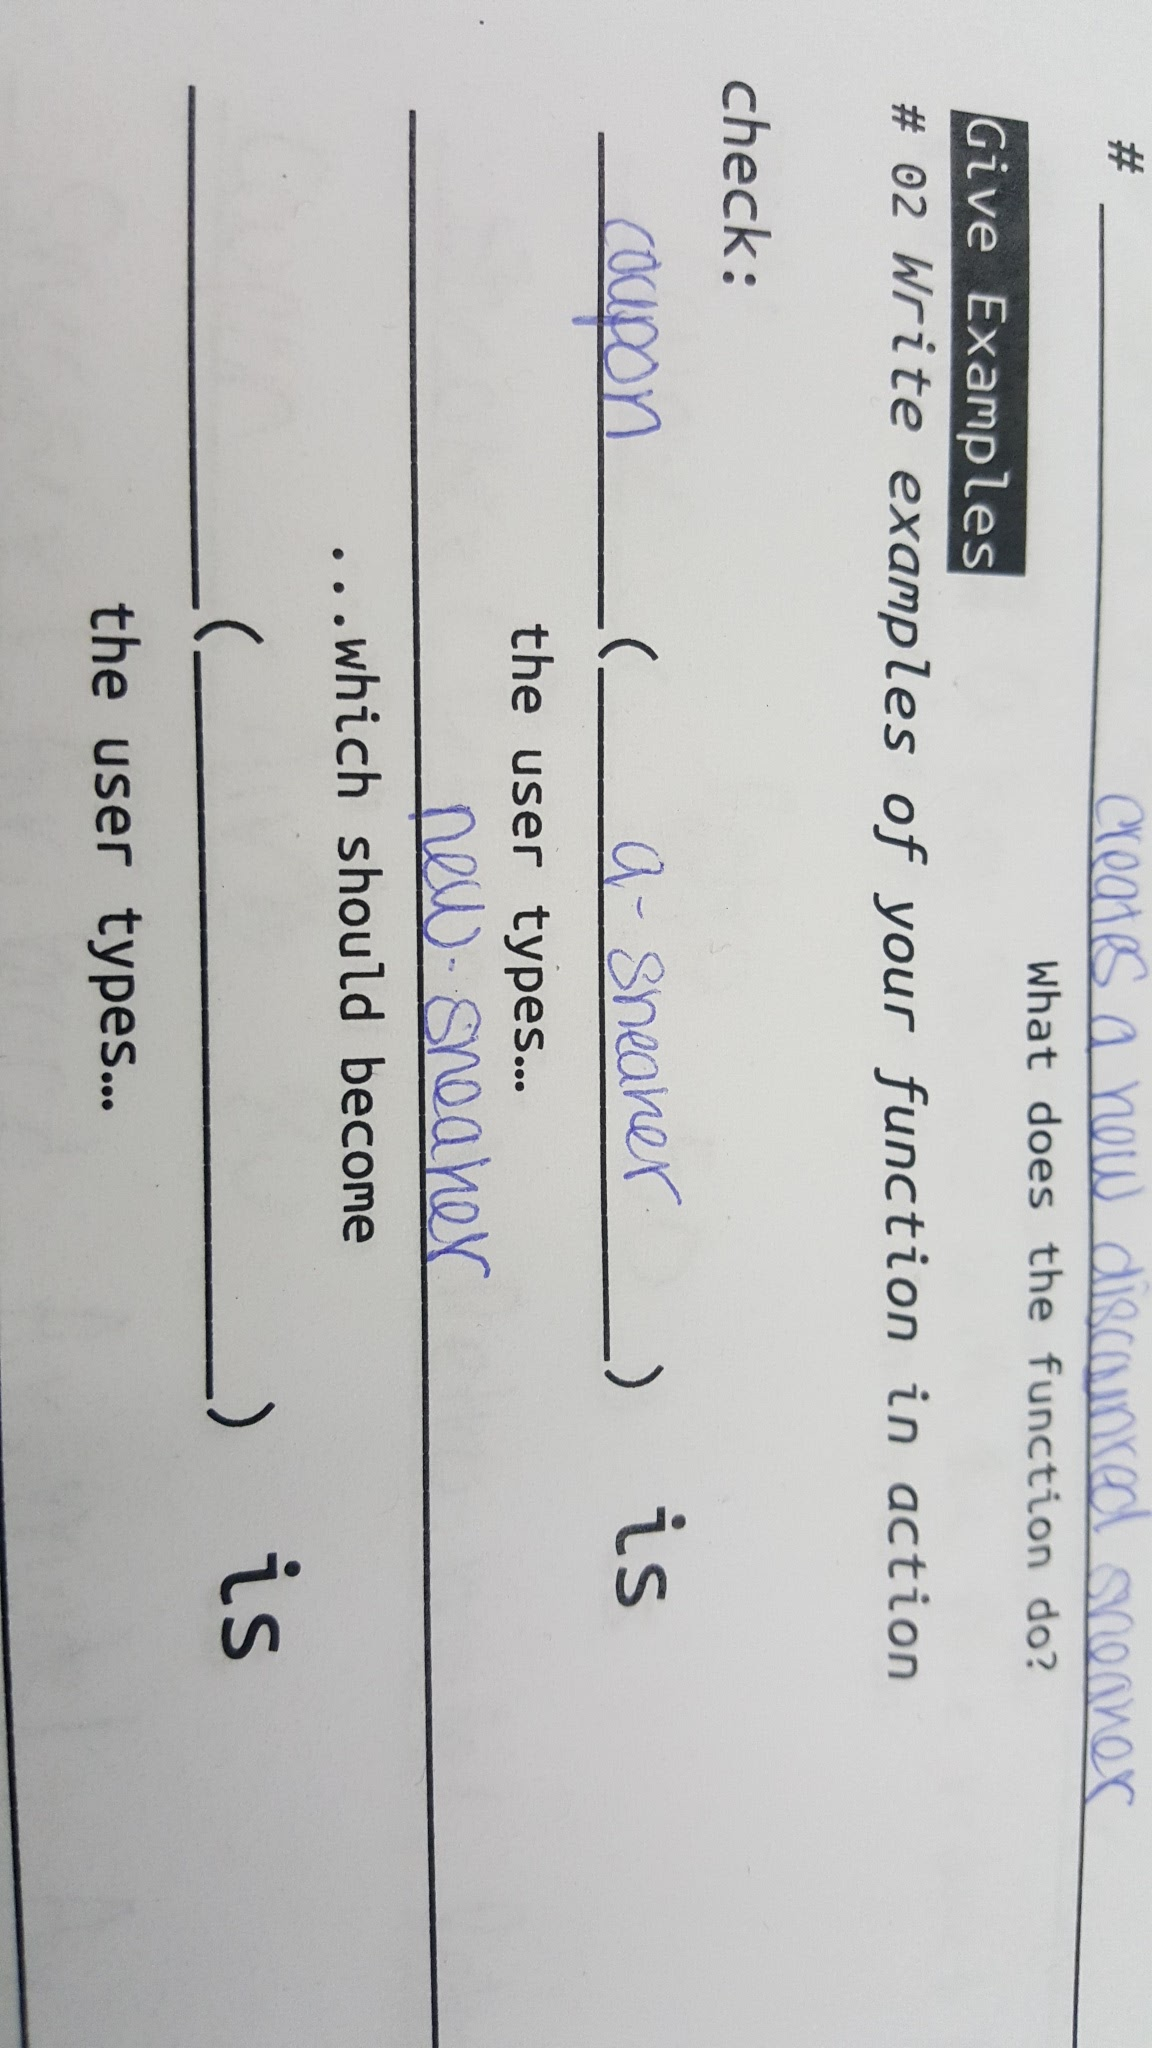 # creates a new discounted sneaker
What does the function do?
Give Examples
# 02 Write examples of your function in action
check:
coupon ( a-sneaker ) is
the user types...
new-sneaker
...which should become
( ) is
the user types...